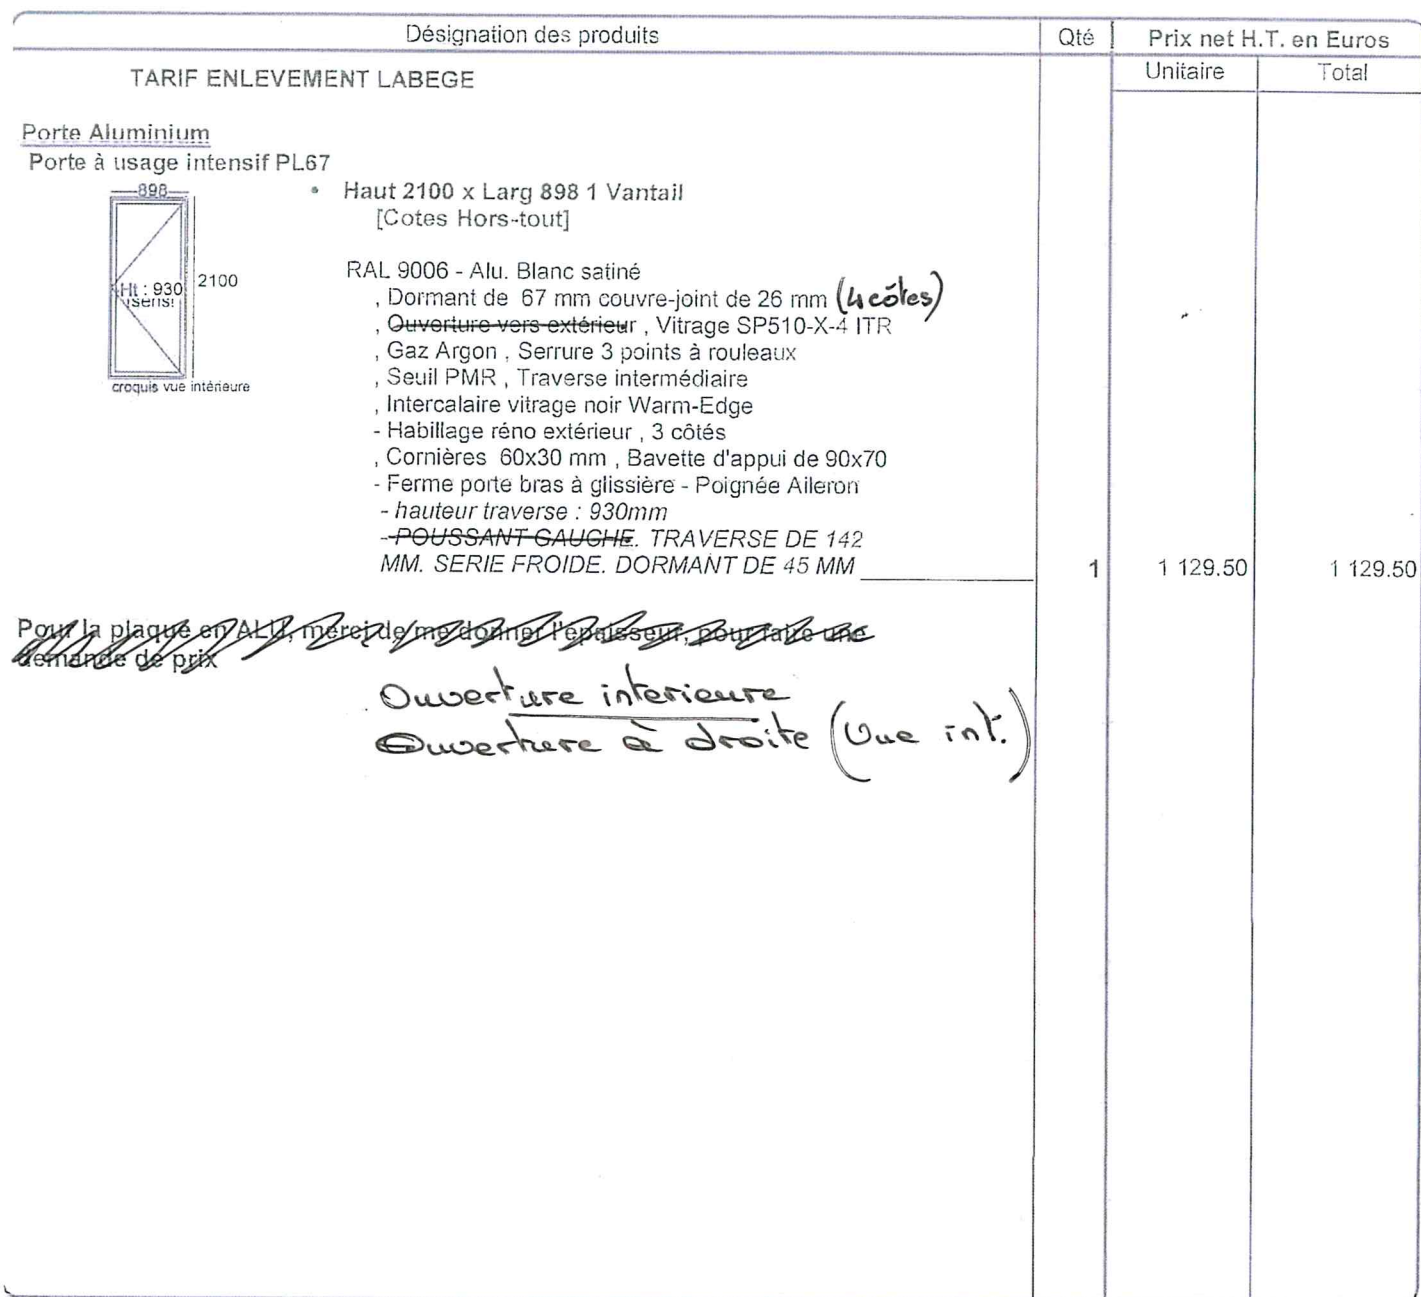 Désignation des produits Qté Prix net H.T. en Euros
Unitaire Total
TARIF ENLEVEMENT LABEGE
Porte Aluminium
Porte à usage intensif PL67
898
Ht : 930
(sens!
2100
croquis vue intérieure
• Haut 2100 x Larg 898 1 Vantail
[Cotes Hors-tout]
RAL 9006 - Alu. Blanc satiné
, Dormant de 67 mm couvre-joint de 26 mm (4 côtes)
, Ouverture vers extérieur , Vitrage SP510-X-4 ITR
, Gaz Argon , Serrure 3 points à rouleaux
, Seuil PMR , Traverse intermédiaire
, Intercalaire vitrage noir Warm-Edge
- Habillage réno extérieur , 3 côtés
, Cornières 60x30 mm , Bavette d'appui de 90x70
- Ferme porte bras à glissière - Poignée Aileron
- hauteur traverse : 930mm
- POUSSANT GAUCHE. TRAVERSE DE 142
MM. SERIE FROIDE. DORMANT DE 45 MM 1 1 129.50 1 129.50
Pour la plaque en ALU, merci de me donner l'épaisseur, pour faire une
demande de prix
Ouverture interieure
Ouverture à droite (Vue int.)